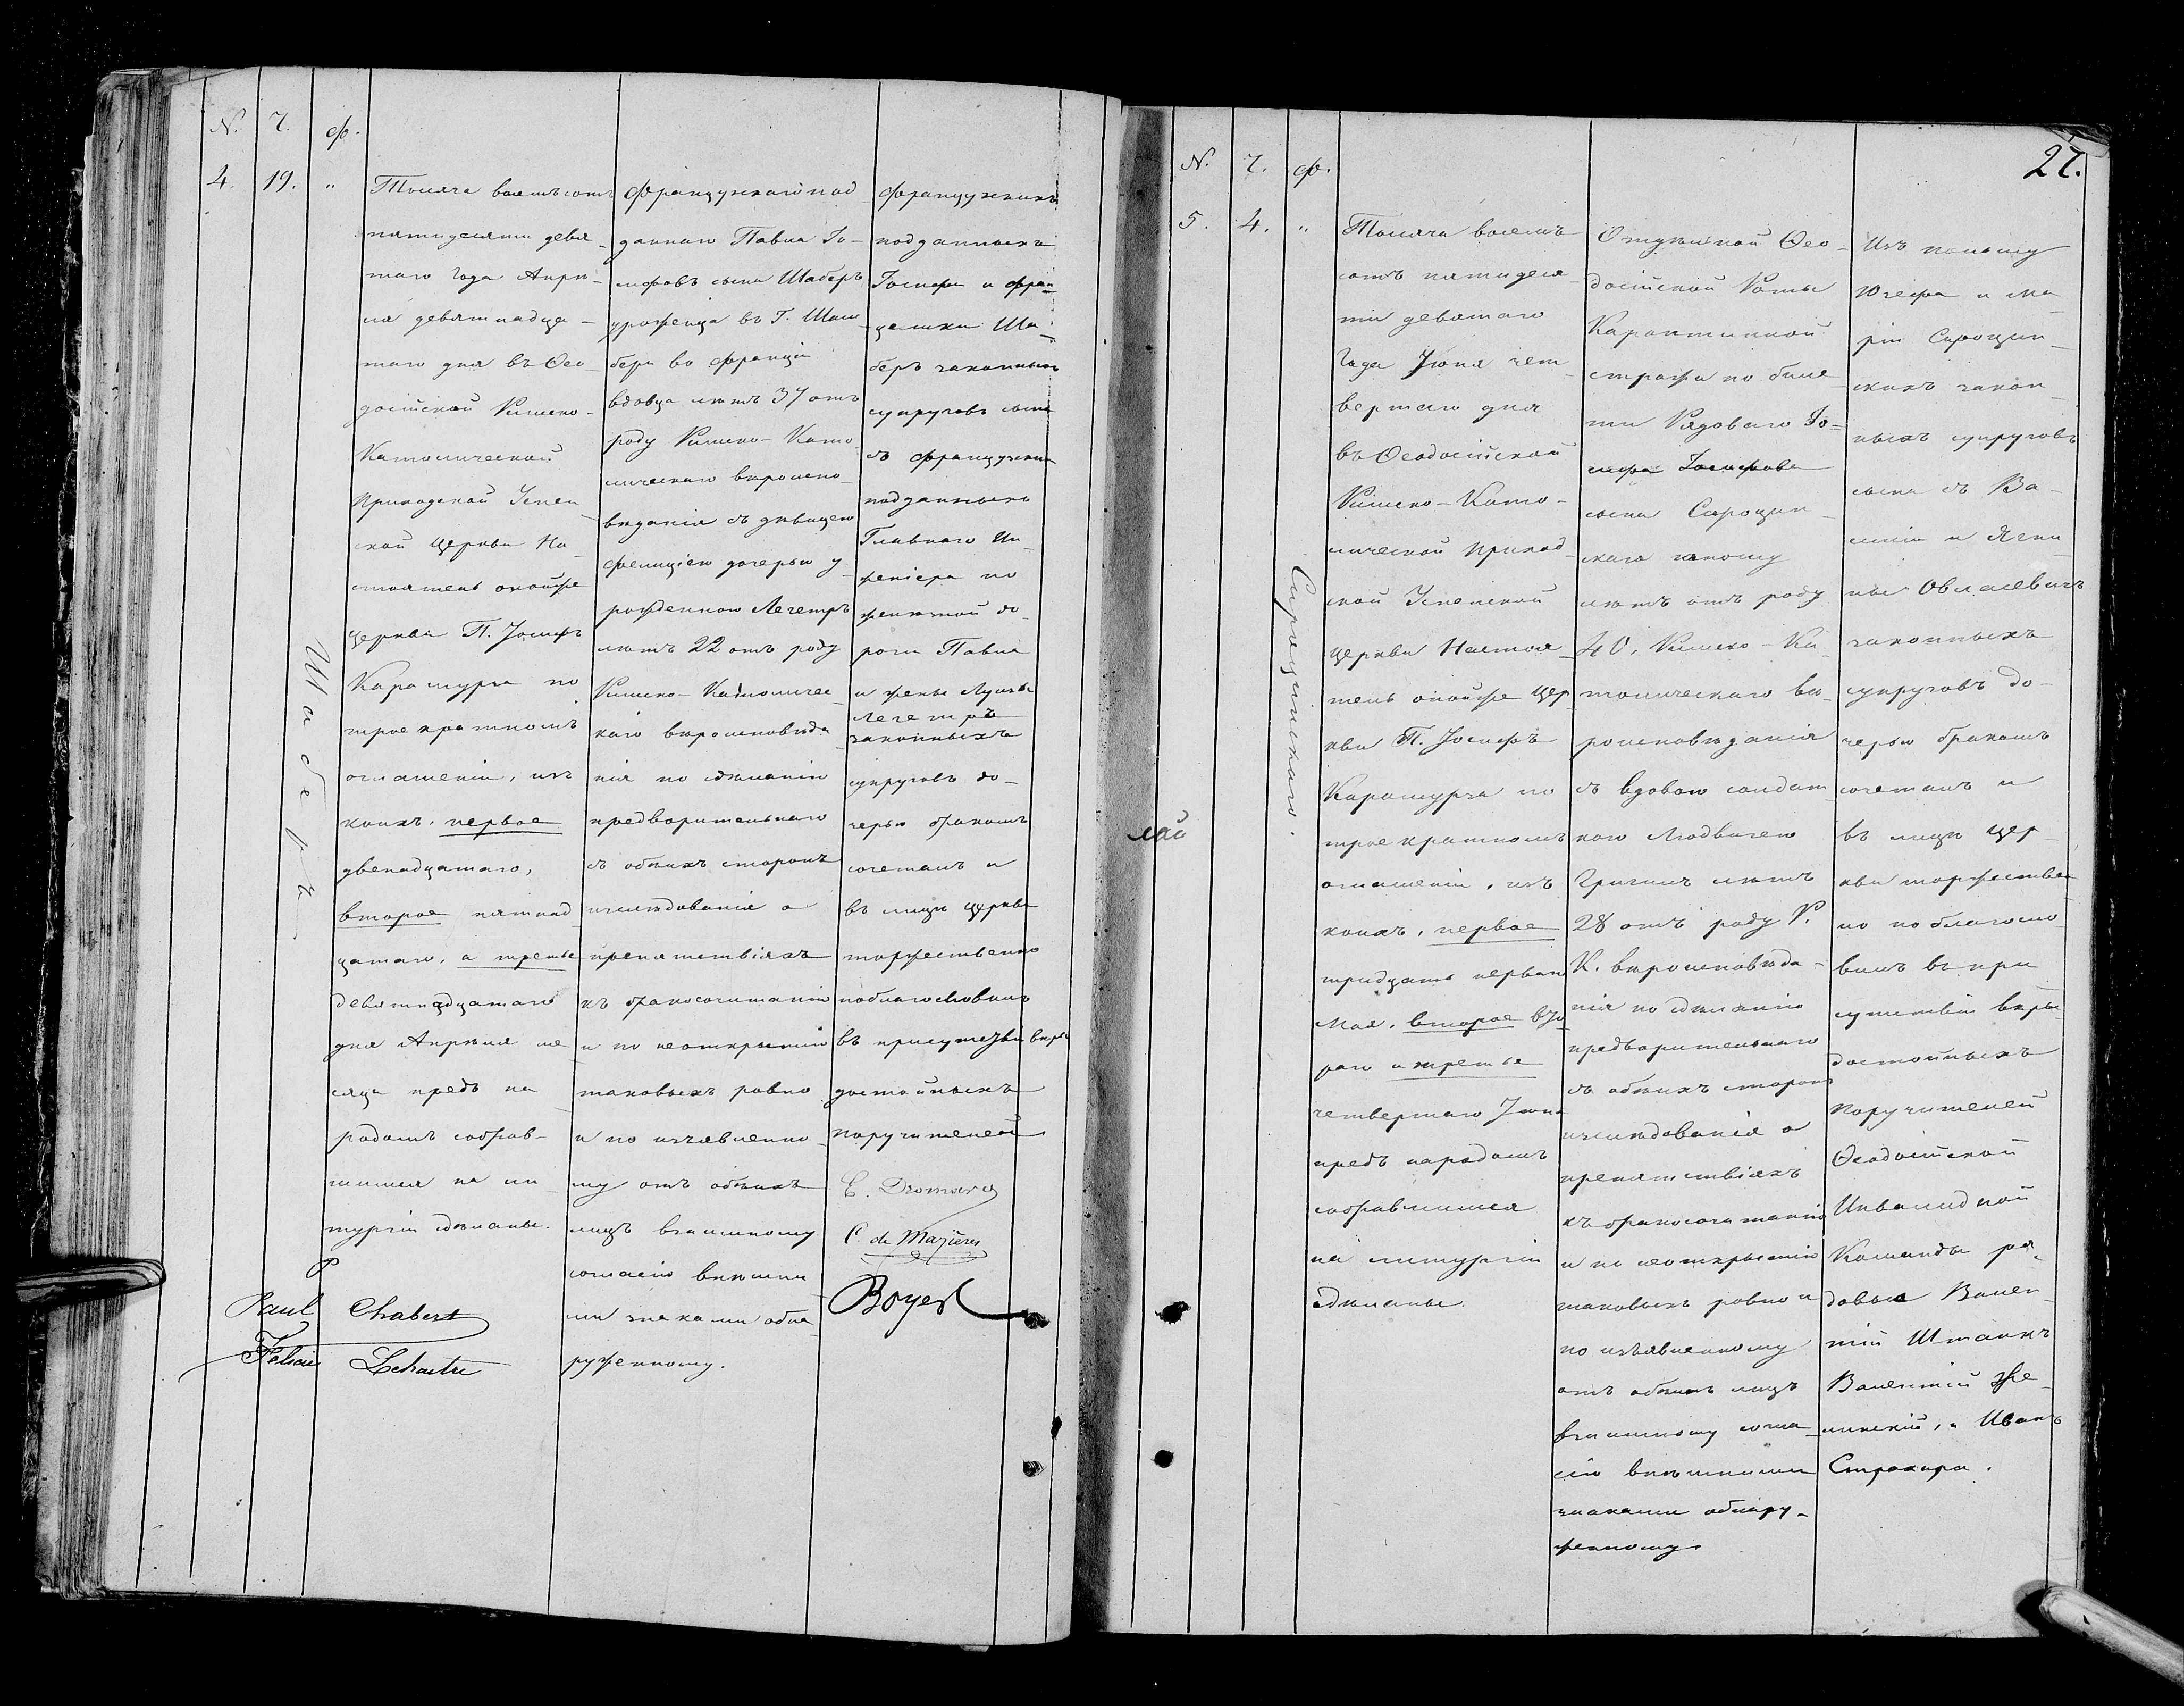 N. 7. ф.
4. 19. "
Шаберъ
Тысяча восемьсотъ
пятидесяти девя-
таго года Апрѣ-
ля девятнадца-
таго дня въ Ѳео-
досійской Римско-
Католической
Приходской Успен-
ской Церкви На-
стоятель онойже
Церкви П. Іосифъ
Карашурга по
троекратномъ
оглашеніи, изъ
коихъ, первое
двенадцатаго,
второе пятнад
цатаго, а третье
девятнадцатаго
дня Апрѣля ме
сяца предъ на
родомъ собрав-
шимся на ли-
тургіи сдѣланы.
Paul Chabert
Felicie Lechartre
Французскаго под
даннаго Павла Іо-
сифовъ сына Шаберъ
уроженца въ Г. Шам
бери во Франціи
вдовца лѣтъ 37 отъ
роду Римско-Като
лическаго вѣроиспо-
вѣданія съ дѣвицею
Фелиціею дочерью у-
рожденною Легетръ
лѣтъ 22 отъ роду
Римско-Католичес
каго вѣроисповѣда
нія по сдѣланіи
предварительнаго
съ обѣихъ сторонъ
изслѣдованія о
препятствіяхъ
къ бракосочетанію
и по неоткрытіи
таковыхъ равно
и по изъявленно-
му отъ обѣихъ
лицъ взаимному
согласію внѣшни
ми знаками обна-
руженному.
Французскихъ
подданныхъ
Іосифа и Фран
цишки Ша-
беръ законныхъ
супруговъ сына
съ французскихъ
подданныхъ
Главнаго Ин-
женіера по
желѣзной до-
роги Павла
и жены Луизы
Легетръ
законныхъ
супруговъ до-
черью бракомъ
сочеталъ и
въ лицѣ Церкви
торжественно
поблагословилъ
въ присутствіи вѣро
достойныхъ
поручителей
E. Dromard
C. de Mazières
Boyer
27.
N. 7. ф.
5. 4. "
Сироцинскаго.
лой
Тысяча восемь
сотъ пятидеся-
ти девятаго
Года Іюня чет-
вертаго дня
въ Ѳеодосійской
Римско-Като-
лической Приход-
ской Успенской
Церкви Настоя-
тель онойже Цер
кви П. Іосифъ
Карашурга по
троекратномъ
оглашеніи, изъ
коихъ, первое
тридцать перваго
Мая, второе вто
раго и третье
четвертаго Іюня
предъ народомъ
собравшимся
на литургіи
сдѣланы.
Отпускной Ѳео-
досійской Роты
Карантинной
стражи по биле-
ти Рядоваго Іо-
сифа Іосифова
сына Сироцин-
скаго юношу
лѣтъ отъ роду
40, Римско-Ка
толическаго вѣ-
роисповѣданія
съ вдовою солдат-
кою Людвигею
Григинъ лѣтъ
28 отъ роду Р.
К. вѣроисповѣда-
нія по сдѣланіи
предварительнаго
съ обѣихъ сторонъ
изслѣдованія о
препятствіяхъ
къ бракосочетанію
и по неоткрытіи
таковыхъ равно и
по изъявленному
отъ обѣихъ лицъ
взаимному согла-
сію внѣшними
знаками обнару-
женному.
Изъ
Юзефа и Ма
ріи Сироцин-
скихъ закон-
ныхъ супруговъ
сына съ Ва-
силія и Ягни
ны Овласевичъ
законныхъ
супруговъ до-
черью бракомъ
сочеталъ и
въ лицѣ Цер-
кви торжествен
но поблагосло
вилъ въ при
сутствіи вѣро
достойныхъ
поручителей
Ѳеодосійской
Инвалидной
Команды ря-
довые Вален-
тій Штаикъ
Валентій Же-
линскій, и Иванъ
Страхара.